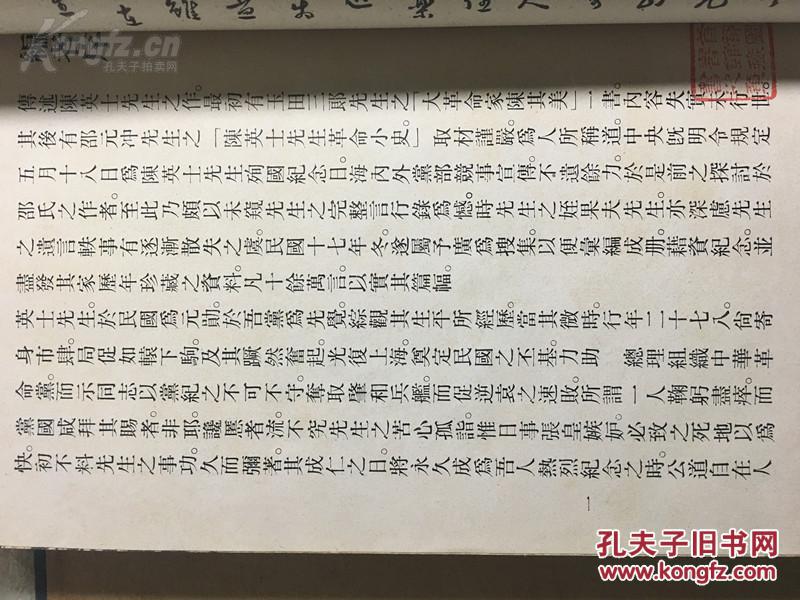 編者序
傳述陳英士先生之作。最初有玉田三郎先生之「大革命家陳其美」一書。內容失實。行世。
其後有邵元冲先生之「陳英士先生革命小史」取材謹嚴。爲人所稱道。中央旣明令規定
五月十八日爲陳英士先生殉國紀念日。海內外黨部競事宣傳。不遺餘力。於是前之探討於
邵氏之作者。至此乃頗以未窺先生之完整言行錄爲憾。時先生之姪果夫先生。亦深慮先生
之遺言軼事有逐漸散失之虞。民國十七年冬。遂屬予廣爲搜集。以便彙編成册。藉資紀念。並
盡發其家歷年珍藏之資料凡十餘萬言。以實其篇幅。
英士先生於民國爲元勛。於吾黨爲先覺。綜觀其生平所經歷。當其微時。行年二十七八。尙寄
身市肆。局促如轅下駒。及其蹶然奮起。光復上海。奠定民國之丕基。力助　總理組織中華革
命黨。而示同志以黨紀之不可不守。奪取肇和兵艦。而促逆袁之速敗。所謂一人鞠躬盡瘁。而
黨國咸拜其賜者。非耶。讒慝者流。不究先生之苦心孤詣。惟日事張皇嫉妒。必致之死地以爲
快。初不料先生之事功。久而彌著。其成仁之日。將永久成爲吾人熱烈紀念之時。公道自在人
一
Kongfz.cn
孔夫子拍卖网
孔夫子旧书网
www.kongfz.com